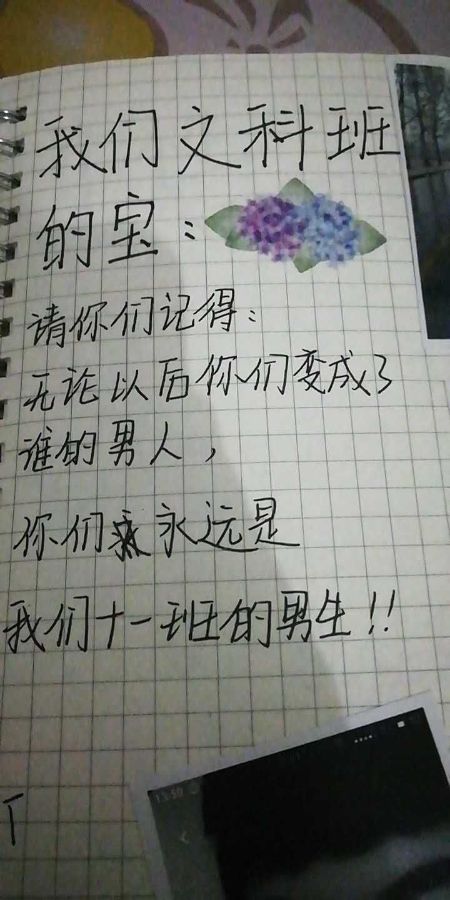 我们文科班
的宝：
请你们记得：
无论以后你们变成了
谁的男人，
你们永远是
我们十一班的男生!!
13:50